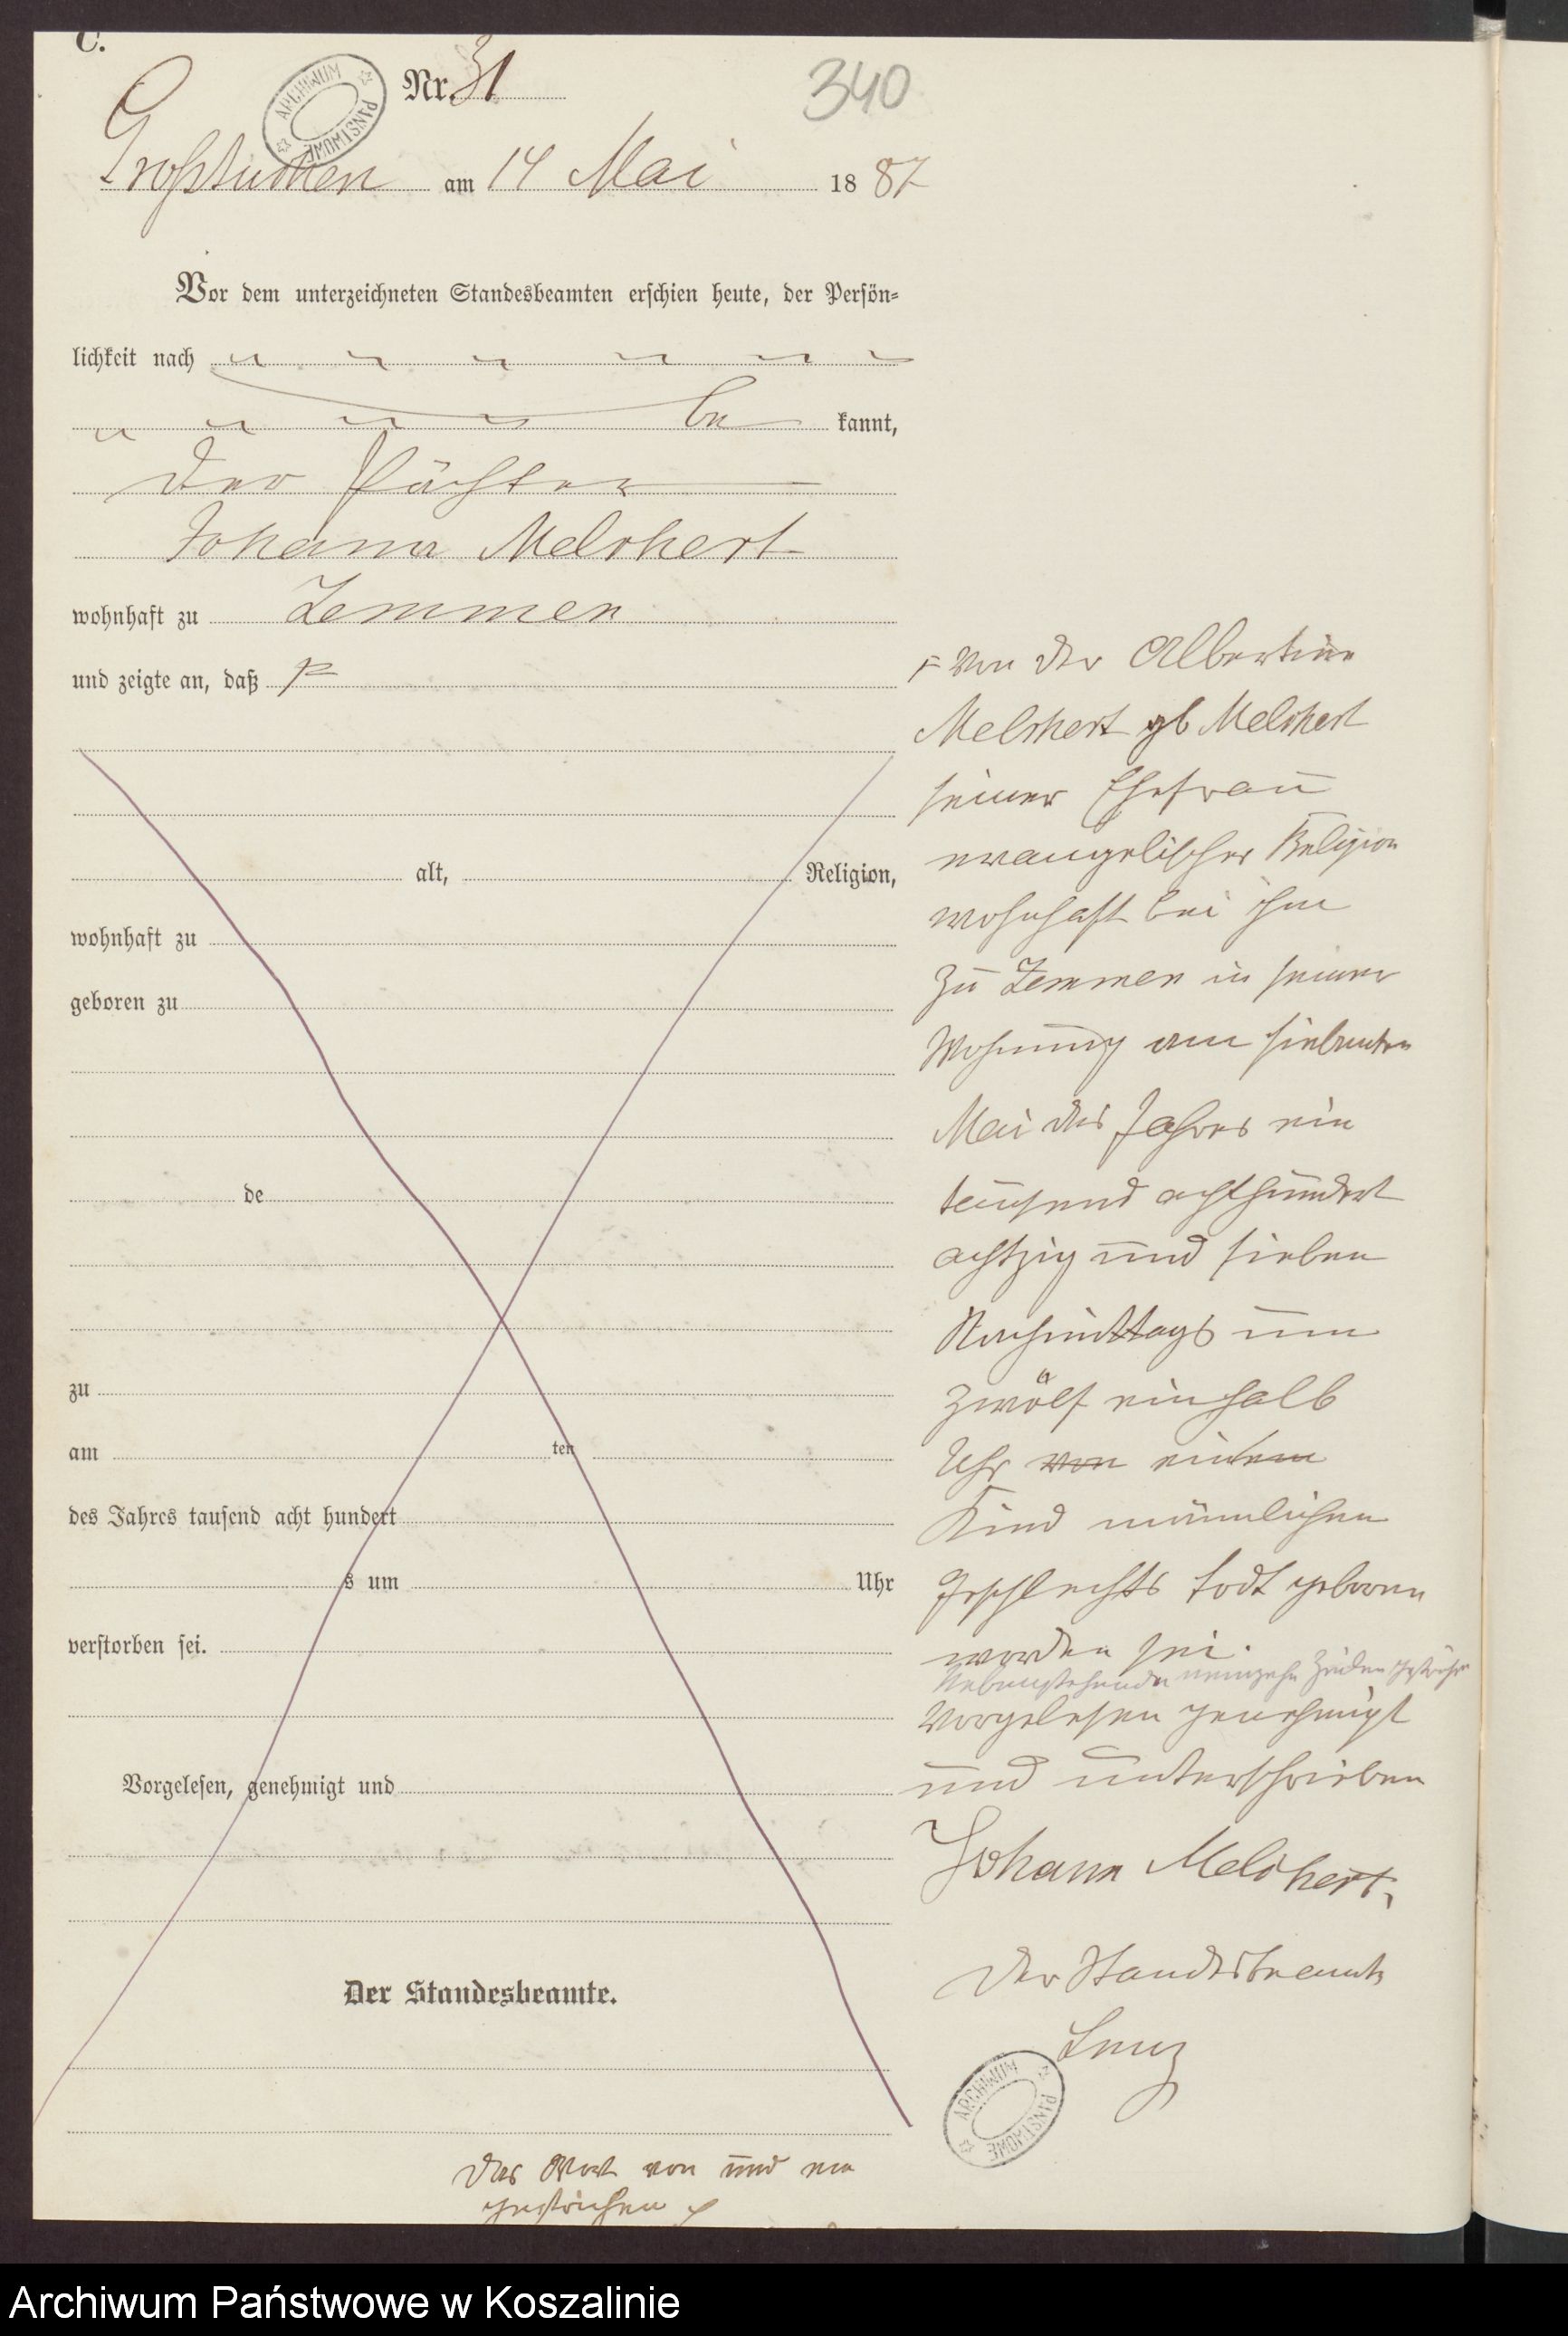 C.
ARCHIWUM PAŃSTWOWE
Nr. 31
340
Großtuchen am 14 Mai 1887
Vor dem unterzeichneten Standesbeamten erschien heute, der Persön-
lichkeit nach
be kannt,
der Pächter
Johann Melchert
wohnhaft zu Zemmen
und zeigte an, daß
alt, Religion,
wohnhaft zu
geboren zu
de
zu
am ten
des Jahres tausend acht hundert
s um Uhr
verstorben sei.
Vorgelesen, genehmigt und
Der Standesbeamte.
von der Albertine
Melchert gb Melchert
seiner Ehefrau
evangelischer Religion
wohnhaft bei ihm
zu Zemmen in seiner
Wohnung am siebenten
Mai des Jahres ein
tausend achthundert
achtzig und sieben
Nachmittags um
zwölf einhalb
Uhr von einem
Kind männlichen
Geschlechts todt geboren
worden sei.
Nebenstehende neunzehn Zeilen gestrichen
Vorgelesen genehmigt
und unterschrieben
Johann Melchert.
Der Standesbeamte
Lenz
ARCHIWUM PAŃSTWOWE
Das Wort von und em
gestrichen
Archiwum Państwowe w Koszalinie